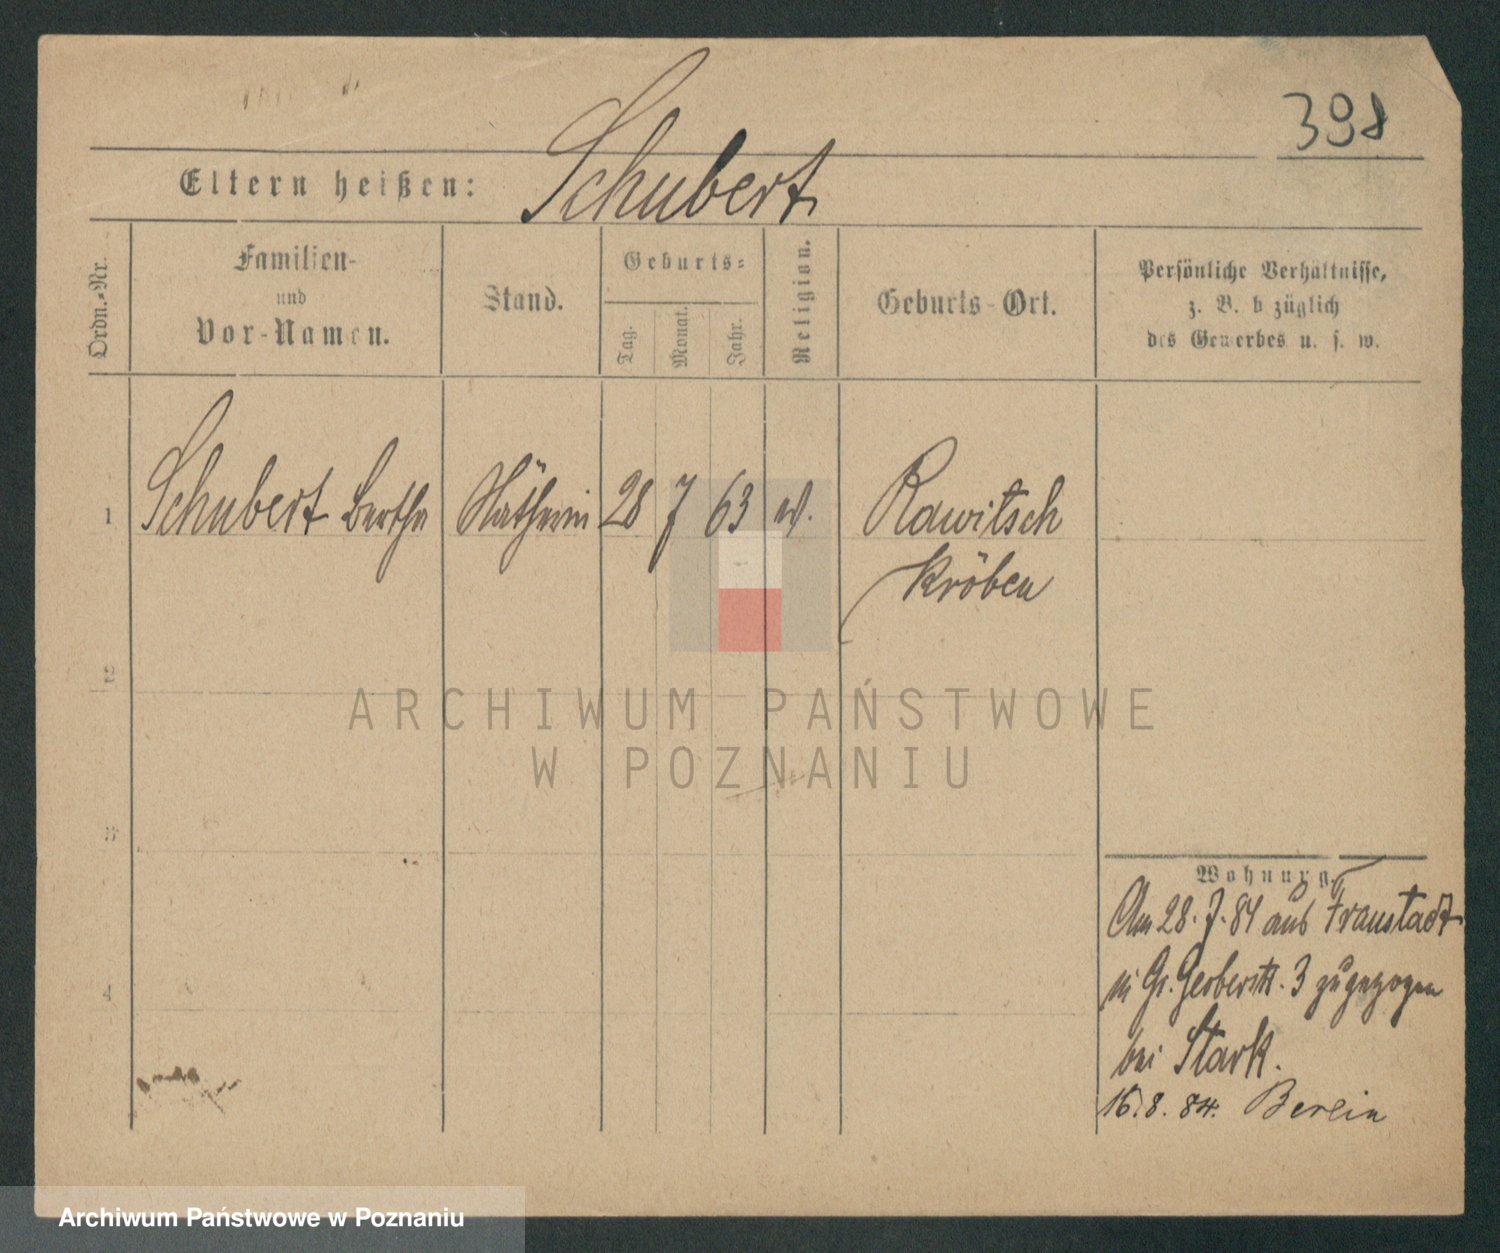 398
Eltern heißen: Schubert
Ordn.-Nr.
Familien-
und
Vor-Namen.
Stand.
Geburts-
Tag.
Monat.
Jahr.
Religion.
Geburts-Ort.
Persönliche Verhältnisse,
z. B. b züglich
des Gewerbes u. s. w.
1 Schubert Bertha Näherin 28 7 63 Rawitsch
Kröben
2
3
4
Wohnung.
Am 28. 7. 84 aus Fraustadt
in Gr. Gerberstr. 3 zugezogen
bei Stark.
16. 8. 84. Berlin
ARCHIWUM PAŃSTWOWE
W POZNANIU
Archiwum Państwowe w Poznaniu